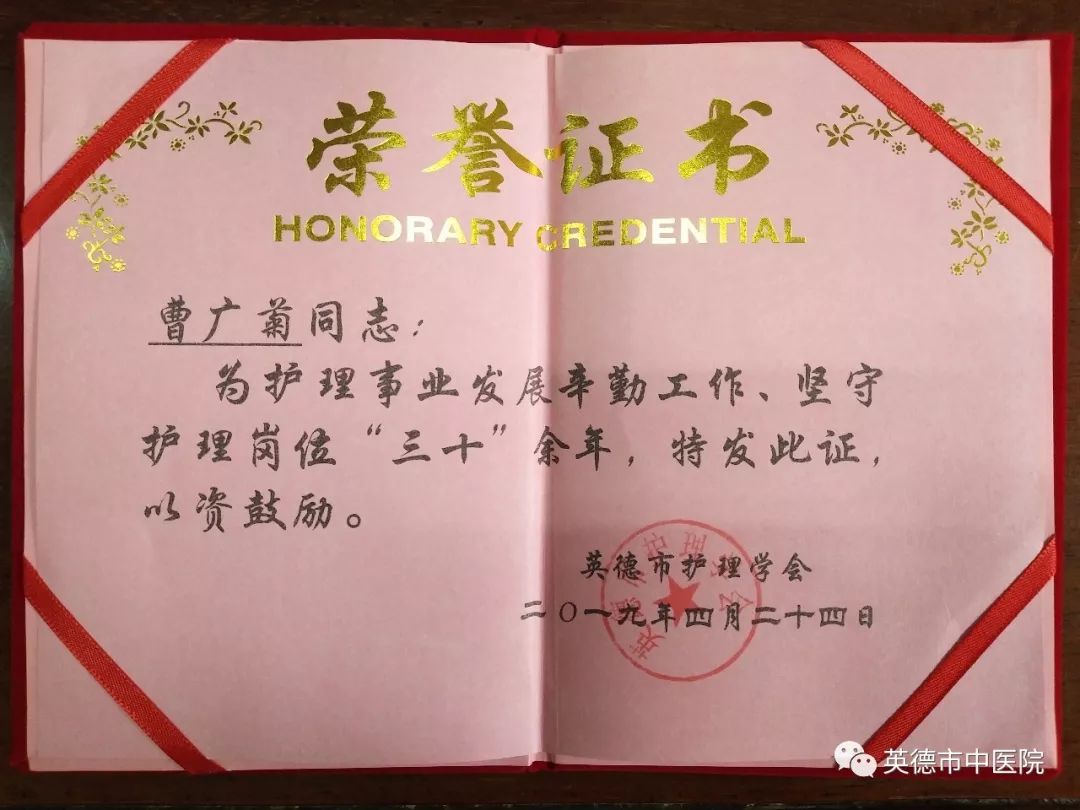 荣誉证书
HONORARY CREDENTIAL
曹广菊同志：
为护理事业发展辛勤工作、坚守
护理岗位“三十”余年，特发此证，
以资鼓励。
英德市护理学会
二〇一九年四月二十四日
英德市护理学会
英德市中医院